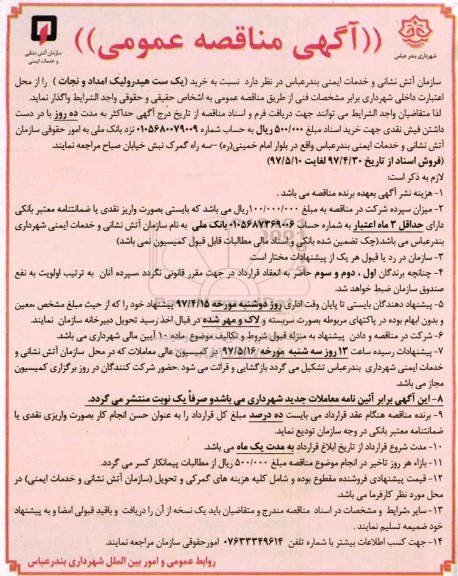 ((آگهی مناقصه عمومی))
شهرداری بندرعباس
سازمان آتش نشانی
و خدمات ایمنی
سازمان آتش نشانی و خدمات ایمنی بندرعباس در نظر دارد نسبت به خرید (یک ست هیدرولیک امداد و نجات) را از محل
اعتبارت داخلی شهرداری برابر مشخصات فنی از طریق مناقصه عمومی به اشخاص حقیقی و حقوقی واجد الشرایط واگذار نماید.
لذا متقاضیان واجد الشرایط می توانند جهت دریافت فرم و اسناد مناقصه از تاریخ درج آگهی حداکثر به مدت ده روز با در دست
داشتن فیش نقدی جهت خرید اسناد مبلغ ۵۰۰/۰۰۰ ریال به حساب شماره ۰۱۰۵۶۸۰۰۷۹۰۰۹ نزد بانک ملی به امور حقوقی سازمان
آتش نشانی و خدمات ایمنی بندرعباس واقع در بلوار امام خمینی(ره) –سه راه گمرک نبش خیابان صباح مراجعه نمایند.
(فروش اسناد از تاریخ ۹۷/۴/۳۰ لغایت ۹۷/۵/۱۰)
لازم به ذکر است:
۱- هزینه نشر آگهی بعهده برنده مناقصه می باشد .
۲- میزان سپرده شرکت در مناقصه به مبلغ ۱۰۰/۰۰۰/۰۰۰ریال می باشد که بایستی بصورت واریز نقدی یا ضمانتنامه معتبر بانکی
دارای حداقل ۳ ماه اعتبار به شماره حساب ۰۱۰۵۶۸۷۳۶۹۰۰۶ بانک ملی به نام سازمان آتش نشانی و خدمات ایمنی شهرداری
بندرعباس می باشد.(چک تضمین شده بانکی و اسناد مالی مطالبات قابل قبول کمیسیون نمی باشد)
۳- سازمان در رد یا قبول هر یک از پیشنهادات مختار است.
۴- چنانچه برندگان اول ، دوم و سوم حاضر به انعقاد قرارداد در جهت مقرر قانونی نگردد ،سپرده آنان به ترتیب اولویت به نفع
صندوق سازمان ضبط خواهد شد.
۵- پیشنهاد دهندگان بایستی تا پایان وقت اداری روز دوشنبه مورخه ۹۷/۴/۱۵ پیشنهاد خود را که از حیث مبلغ مشخص ،معین
و بدون ابهام بوده در پاکتهای مربوطه بصورت سربسته و لاک و مهر شده در قبال اخذ رسید تحویل دبیرخانه سازمان نمایند.
۶- شرکت در مناقصه و دادن پیشنهاد به منزله قبول شروط و تکالیف موضوع ماده ۱۰ آیین مالی شهرداری می باشد.
۷- پیشنهادات رسیده ساعت ۱۳ روز سه شنبه مورخه ۹۷/۵/۱۶ در کمیسیون عالی معاملات که در محل سازمان آتش نشانی و
خدمات ایمنی شهرداری بندرعباس تشکیل می گردد بازگشایی و قرائت می شود .حضور شرکت کنندگان در روز برگزاری کمیسیون
مجاز می باشد.
۸- این آگهی برابر آئین نامه معاملات جدید شهرداری می باشدو صرفاً یک نوبت منتشر می گردد.
۹- برنده مناقصه هنگام عقد قرارداد می بایست ده درصد مبلغ کل قرارداد را به عنوان حسن انجام کار بصورت واریزی نقدی یا
ضمانتنامه معتبر بانکی در وجه سازمان تودیع نماید.
۱۰- مدت شروع قرارداد از تاریخ ابلاغ قرارداد به مدت یک ماه می باشد.
۱۱- بازاء هر روز تاخیر در انجام موضوع مناقصه مبلغ ۵۰۰/۰۰۰ ریال از مطالبات پیمانکار کسر می گردد.
۱۲- قیمت پیشنهادی فروشنده مقطوع بوده و شامل کلیه هزینه های گمرکی و تحویل (سازمان آتش نشانی و خدمات ایمنی) در
محل مورد نظر کارفرما می باشد.
۱۳- سایر شرایط و مشخصات در اسناد مناقصه مندرج و متقاضیان باید یک نسخه از آن را دریافت و باقید قبولی امضا و به پیشنهاد
خود ضمیمه تسلیم نمایند .
۱۴- جهت کسب اطلاعات بیشتر با شماره تلفن ۰۷۶۳۳۳۴۹۶۱۴ امورحقوقی سازمان مراجعه نمایند.
روابط عمومی و امور بین الملل شهرداری بندرعباس